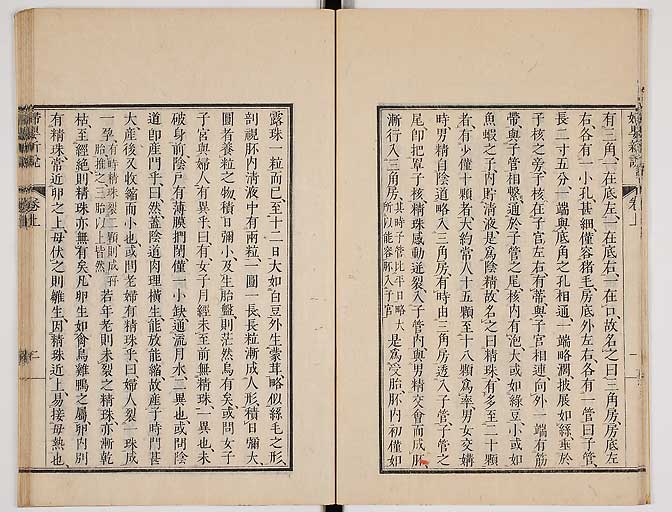 有三角、一在底左、一在底右、一在口、故名之曰三角房、房底左
右、各有一小孔、甚細、僅容豬毛、房底外左右、各有一管曰子管、
長二寸五分、一端與底角之孔相通、一端略濶披展如絲垂於
子核之旁、子核在子宮左右、有蒂與子宮相連、向外一端有筋
帶與子管相繫、通於子管之尾、核內有泡、大或如綠豆、小或如
魚蝦之子、內貯清液、是為陰精、故名之曰精珠、有多至二十顆
者、有少僅十顆者、大約常人十五顆至十八顆為率、男女交媾
時、男精自陰道略入三角房、有時由三角房透入子管、子管之
尾、即把罩子核、精珠感動迸裂、入子管內、與男精交會而成胚、
漸行入三角房、其時子管比平日略大所以能容胚入子宮是為受胎、胚內初僅如
露珠一粒而已、至十二日大如白豆、外生蒙茸、略似絲毛之形、
剖視胚內清液中、有兩粒、一圓一長、長粒漸成人形、積日彌大、
圓者養粒之物、積日彌小、及生胎盤、則茫然烏有矣、或問女子
子宮與婦人有異乎、曰有、女子月經未至前、無精珠、一異也、未
破身前、陰戶有薄膜捫閉、僅一小缺、通流月水、二異也、或問陰
道即產門乎、曰然、蓋陰道肉理橫生、能放能縮、故產子時門甚
大、產後又收縮而小也、或問老婦有精珠乎、曰婦人裂一珠成
一孕、有時精珠裂二顆則成孖胎推之三胎以上皆然若年老則未裂之精珠、亦漸乾
枯、至經絕、則精珠亦無有矣、凡卵生如禽鳥雞鴨之屬、卵內別
有精珠、常近卵之上、母伏之則雛生、因精珠近上、易接母熱也、